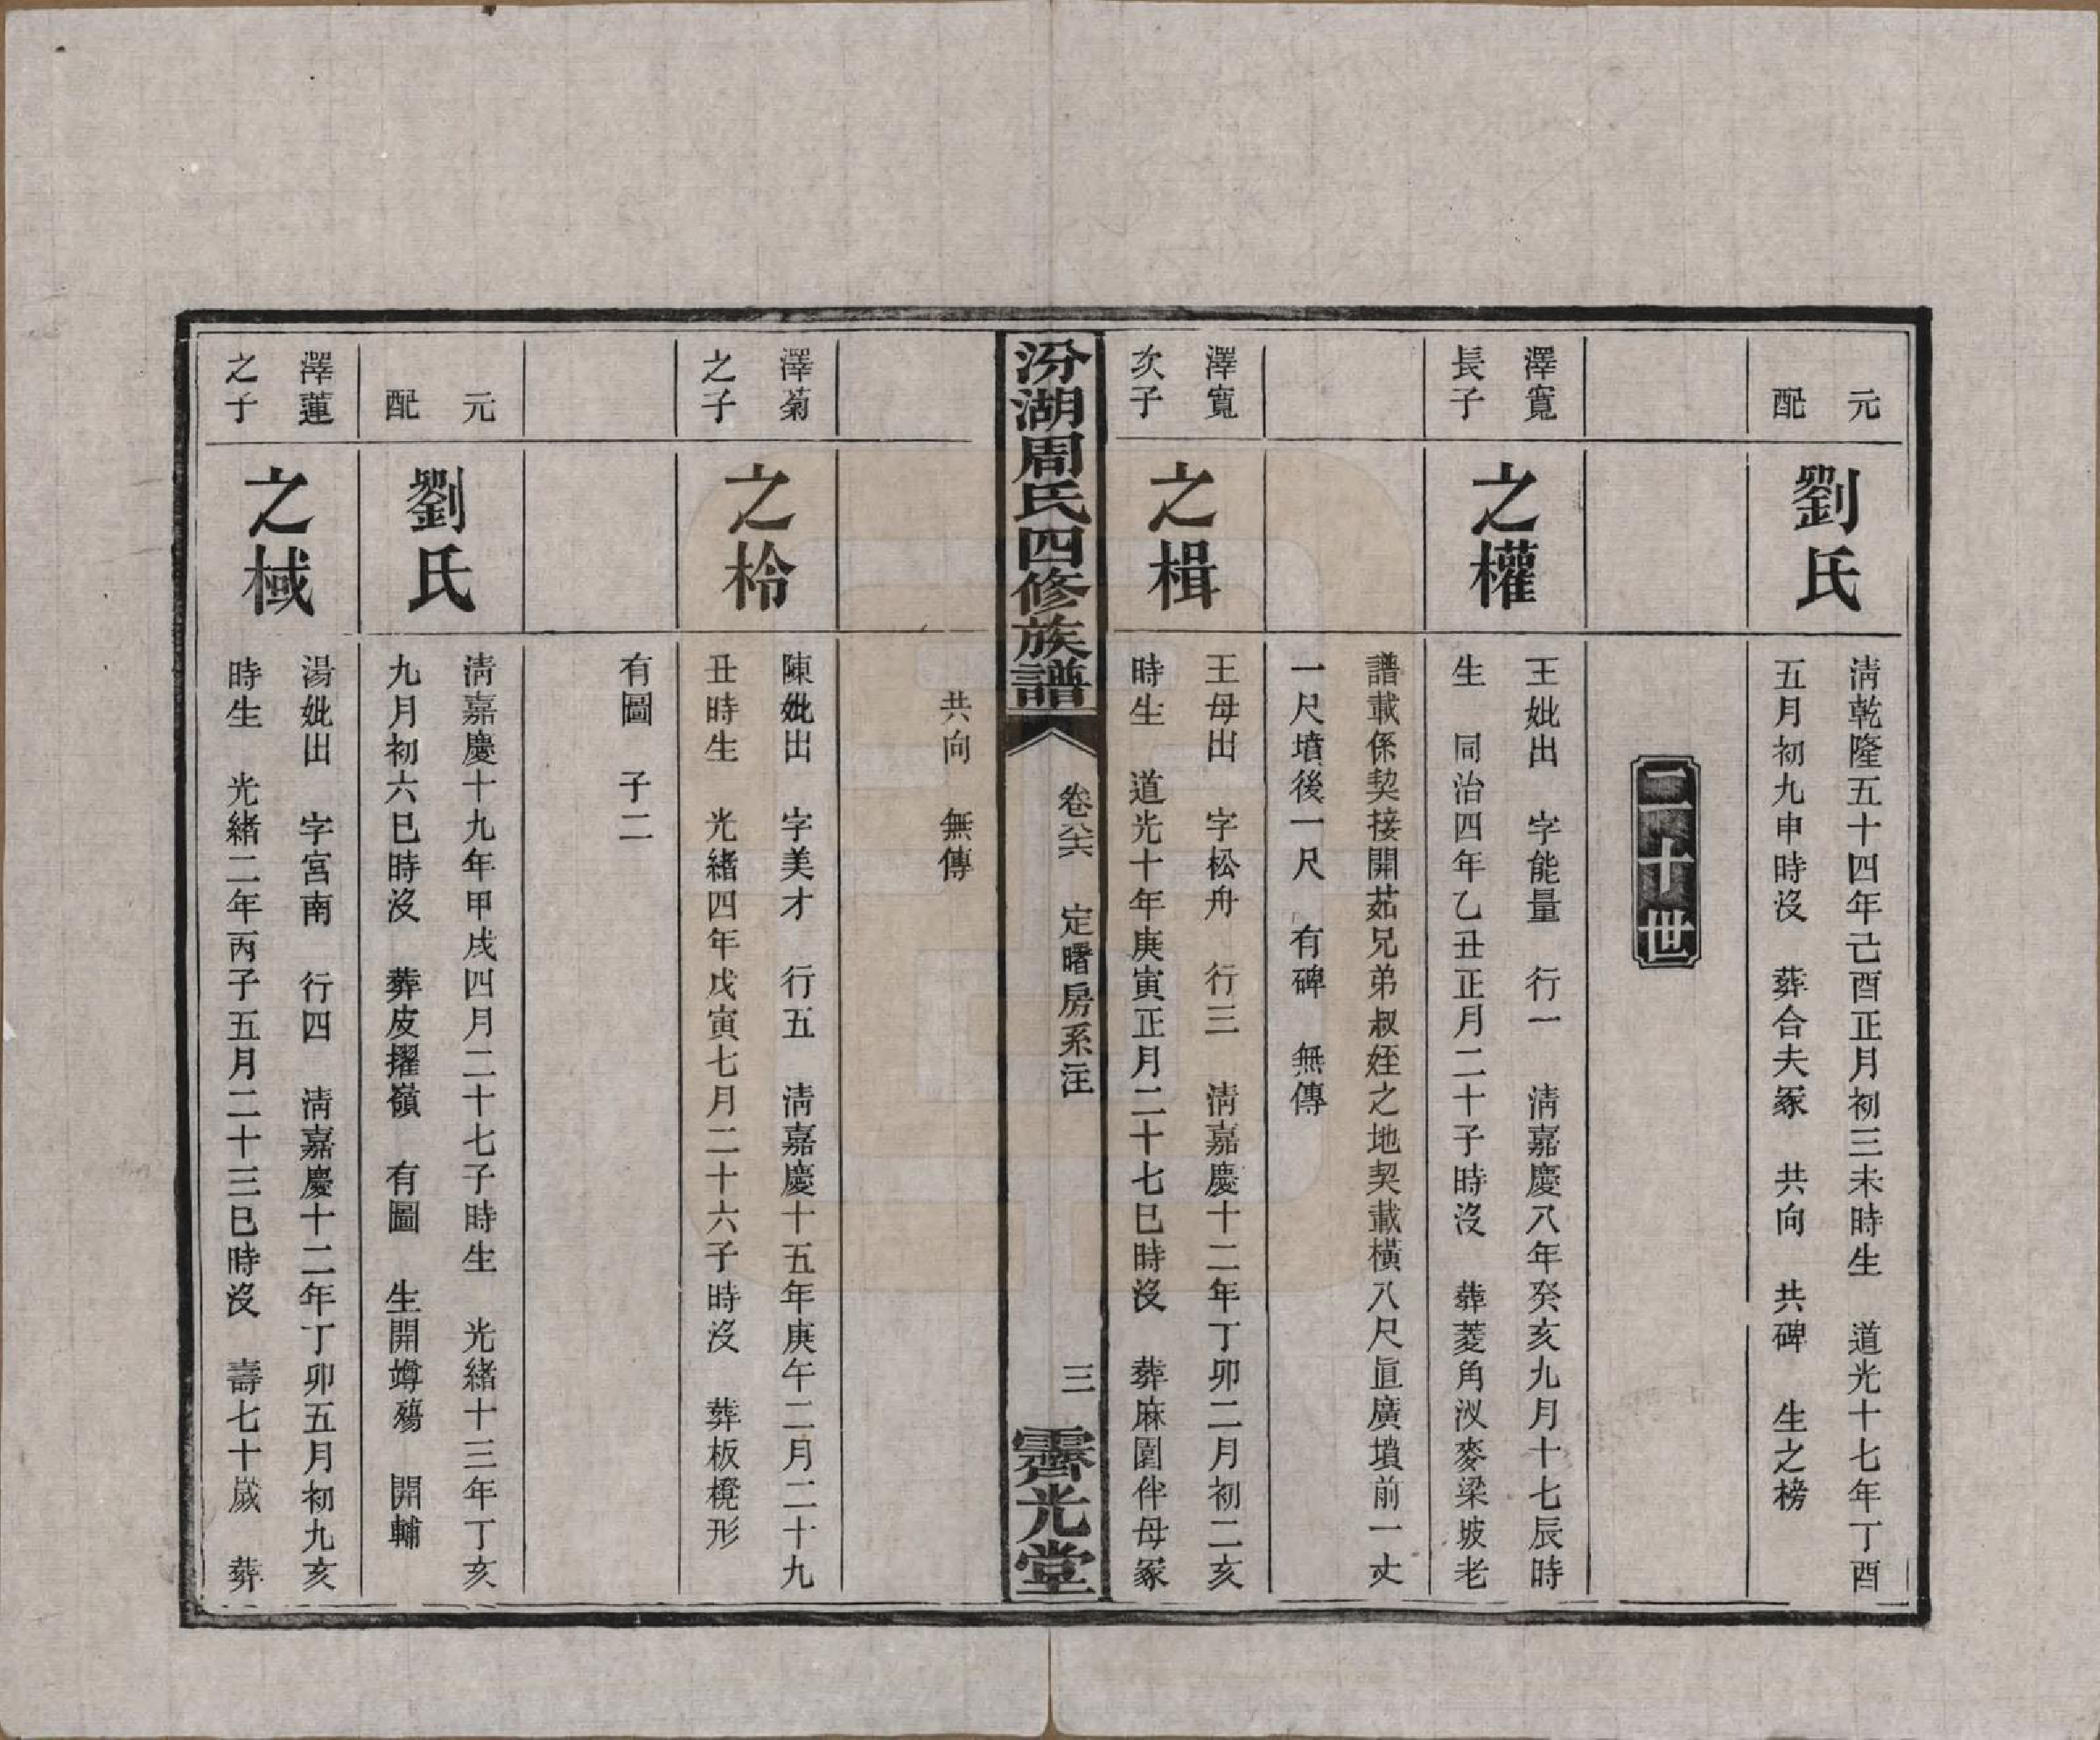 元
配
劉氏
淸乾隆五十四年己酉正月初三未時生　道光十七年丁酉
五月初九申時沒　葬合夫冢　共向　共碑　生之榜
二十世
澤寬
長子
之權
王妣出　字能量　行一　淸嘉慶八年癸亥九月十七辰時
生　同治四年乙丑正月二十子時沒　葬菱角汊麥梁坡老
譜載係契接開茹兄弟叔姪之地契載橫八尺直廣墳前一丈
一尺墳後一尺　有碑　無傳
澤寬
次子
之楫
王母出　字松舟　行三　淸嘉慶十二年丁卯二月初二亥
時生　道光十年庚寅正月二十七巳時沒　葬麻園伴母冢
汾湖周氏四修族譜
卷六六　定曙房系注
三
霽光堂
共向　無傳
澤菊
之子
之柃
陳妣出　字美才　行五　淸嘉慶十五年庚午二月二十九
丑時生　光緖四年戊寅七月二十六子時沒　葬板櫈形
有圖　子二
元
配
劉氏
淸嘉慶十九年甲戌四月二十七子時生　光緖十三年丁亥
九月初六巳時沒　葬皮擢嶺　有圖　生開竴殤　開輔
澤蓮
之子
之棫
湯妣出　字宮南　行四　淸嘉慶十二年丁卯五月初九亥
時生　光緖二年丙子五月二十三巳時沒　壽七十歲　葬